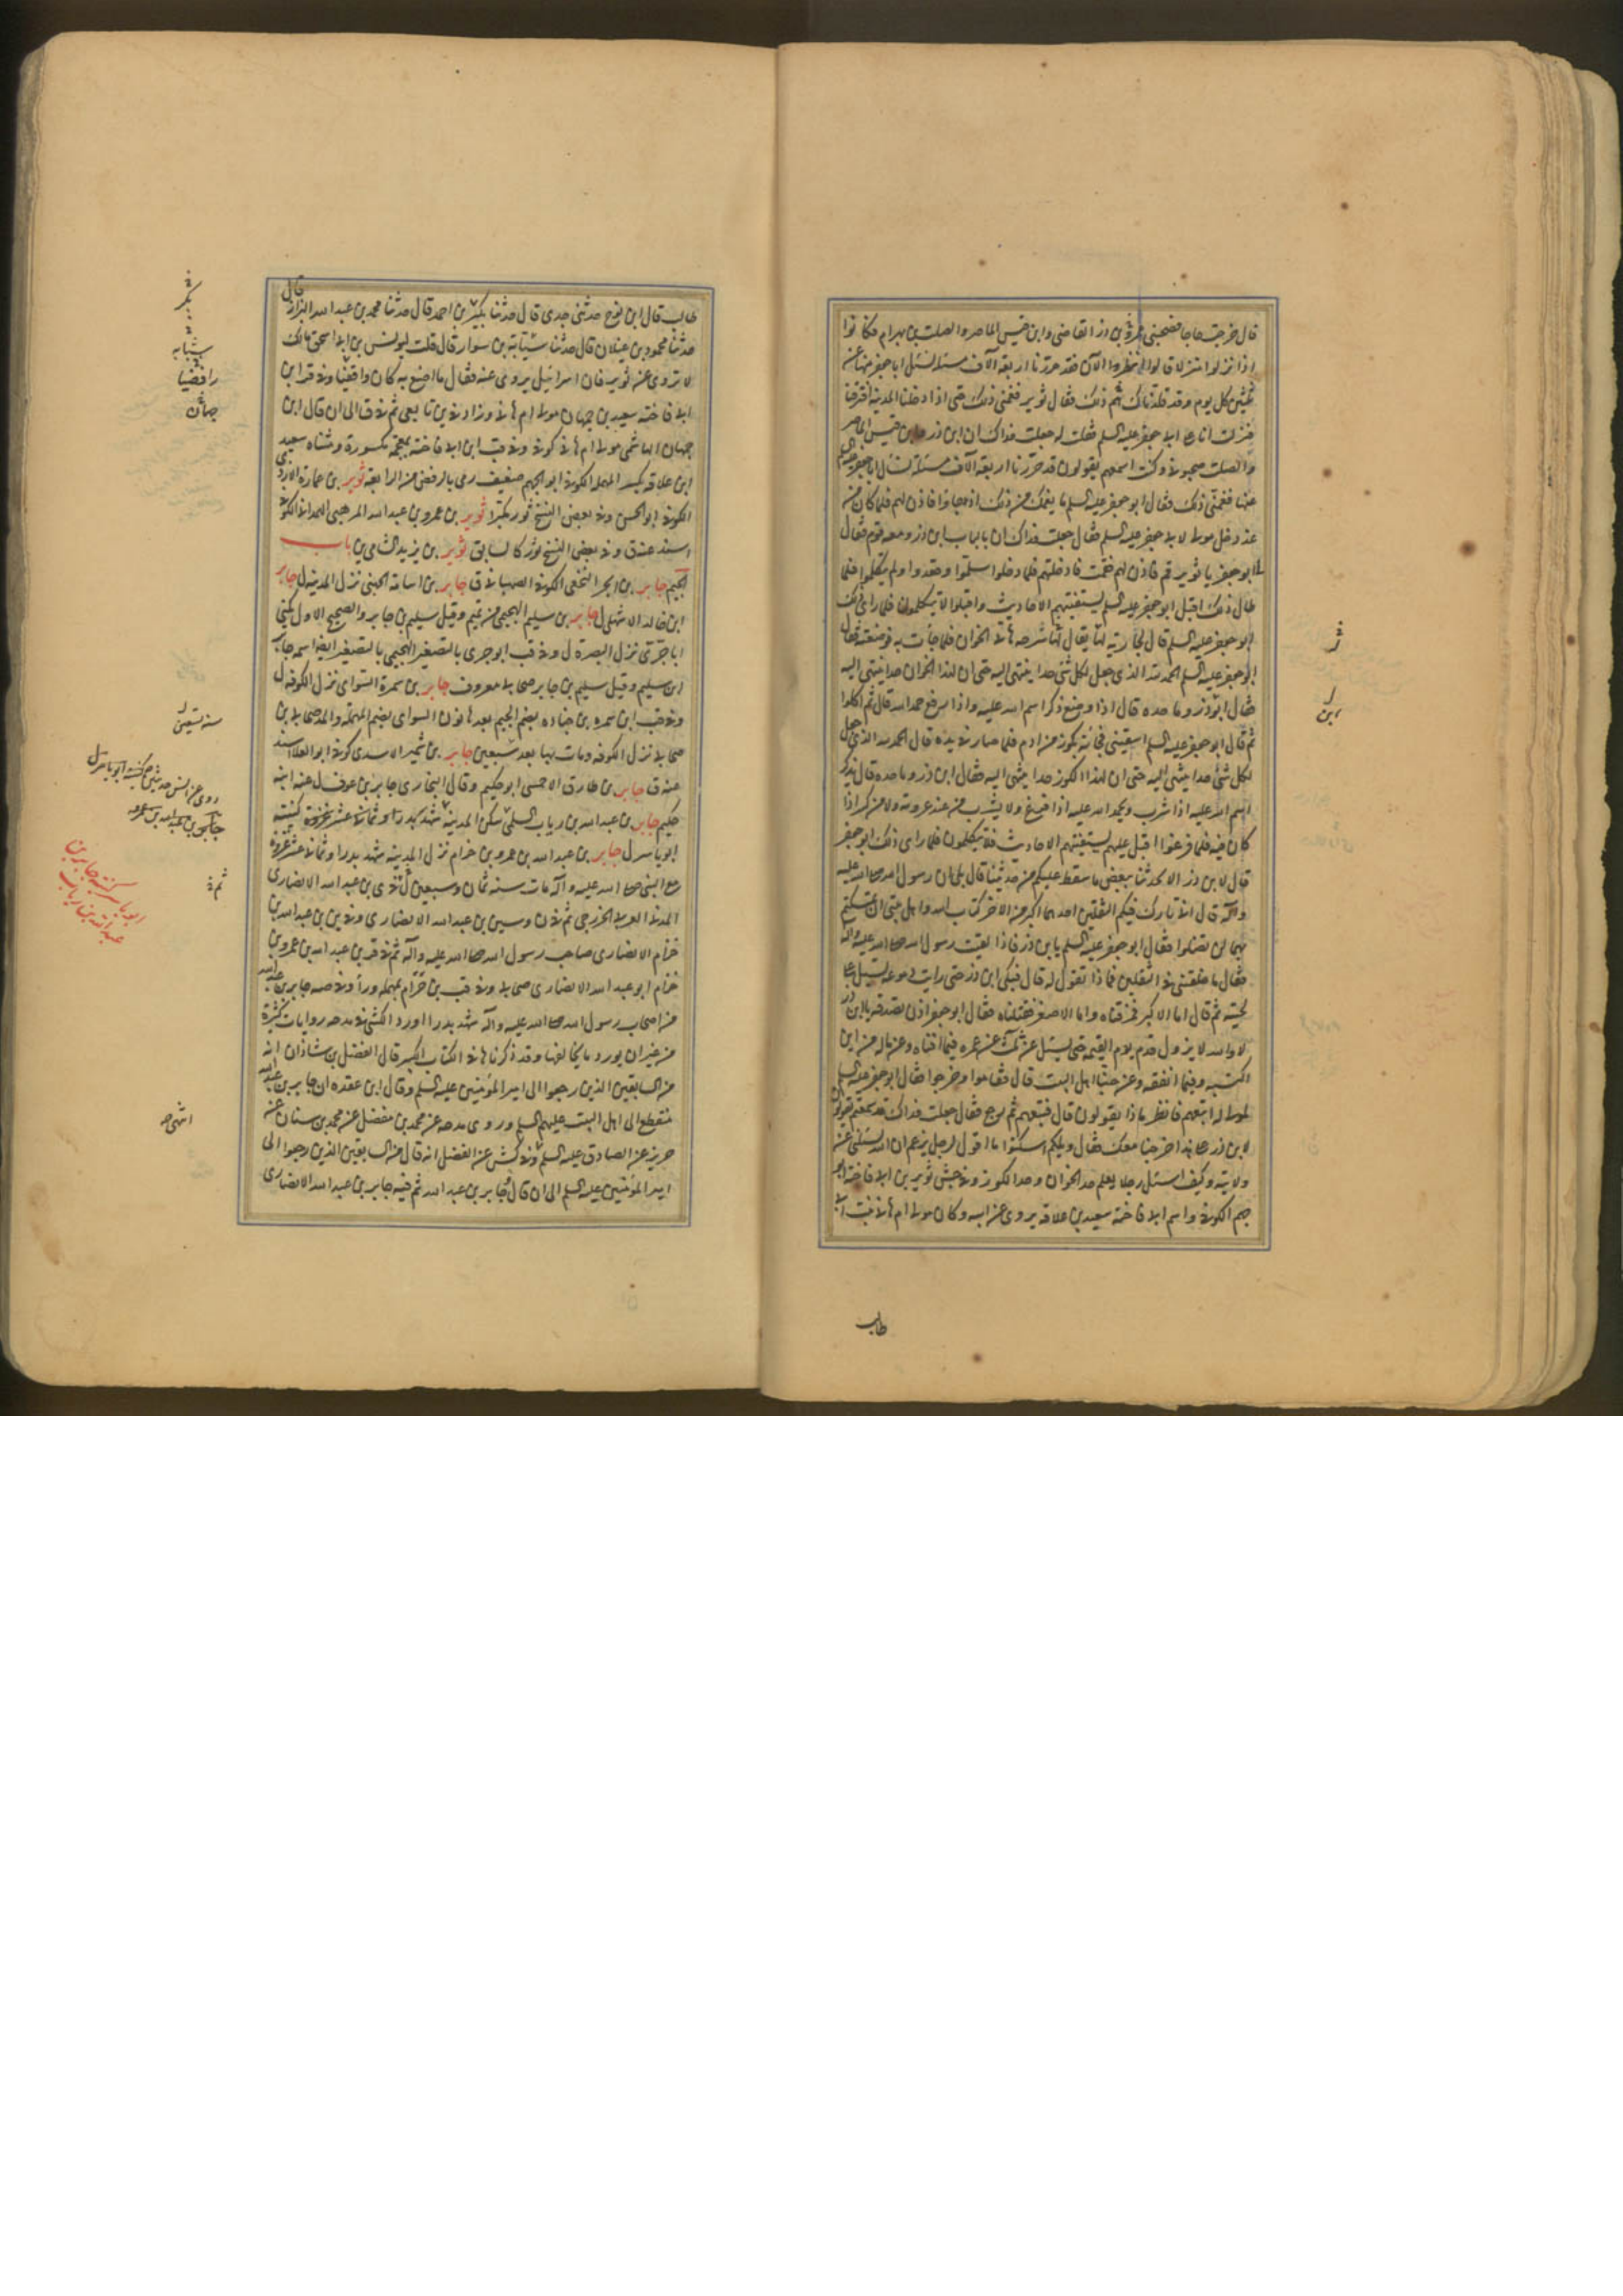 قال خرجت حاجا فصحبني عمر بن ذر القاضي وابن قيس الماصر والصلت بن بهرام فكانوا
اذا نزلوا منزلا قالوا انظروا الآن فقد حررنا اربعة آلاف مسئلة نسئل ابا جعفر منها عن
ثلثين كل يوم وقد قلدناك ذلك فقال ثوير فغمني ذلك حتى اذا دخلنا المدينة افترقنا
فنزلت انا على ابي جعفر عليه السلم فقلت له جعلت فداك ان ابن ذر وابن قيس الماصر
والصلت صحبوني وكنت اسمعهم يقولون قد حررنا اربعة آلاف مسئلة نسئل ابا جعفر عليه السلم
عنها فغمني ذلك فقال ابو جعفر عليه السلم ما يغمك من ذلك اذا جاؤا فاذن لهم فلما كان من
غد دخل مولى لابي جعفر عليه السلم فقال جعلت فداك ان بالباب ابن ذر ومعه قوم فقال
ابو جعفر يا ثوير قم فاذن لهم فقمت فادخلتهم فلما دخلوا سلموا وقعدوا ولم يتكلموا فلما
طال ذلك اقبل ابو جعفر عليه السلم يستفتيهم الاحاديث واقبلوا لا يتكلمون فلما راى ذلك
ابو جعفر عليه السلم قال لجارية له يقال لها سرحة هاتي الخوان فلما جائت به فوضعته فقال
ابو جعفر عليه السلم الحمد لله الذي جعل لكل شئ حدا ينتهي اليه حتى ان لهذا الخوان حدا ينتهي اليه
فقال ابو ذر وما حده قال اذا وضع ذكر اسم الله عليه واذا رفع حمد الله قال ثم اكلوا
ثم قال ابو جعفر عليه السلم اسقيني فجائته بكوز من ادم فلما صار في يده قال الحمد لله الذي جعل
لكل شئ حدا ينتهي اليه حتى ان لهذا الكوز حدا ينتهي اليه فقال ابن ذر وما حده قال يذكر
اسم الله عليه اذا شرب ويحمد الله عليه اذا فرغ ولا يشرب من عند عروته ولا من كسر اذا
كان فيه فلما فرغوا اقبل عليهم يستفتيهم الاحاديث فلا يتكلمون فلما راى ذلك ابو جعفر
قال لابن ذر الا تحدثنا ببعض ما سقط عليكم من حديثنا قال بلى ان رسول الله صلى الله عليه
وآله قال اني تارك فيكم الثقلين احدهما اكبر من الاخر كتاب الله واهل بيتي ان تمسكتم
بهما لن تضلوا فقال ابو جعفر عليه السلم يا بن ذر فاذا لقيت رسول الله صلى الله عليه وآله
فقال ما خلفتني في الثقلين فما ذا تقول له قال فبكى ابن ذر حتى رايت دموعه تسيل على
لحيته ثم قال اما الاكبر فمزقناه واما الاصغر فقتلناه فقال ابو جعفر اذن تصدقه يا بن ذر
لا والله لا يزول قدم يوم القيمة حتى يسئل عن ثلث عن عمره فيما افناه وعن ماله من اين
اكتسبه وفيما انفقه وعن حبنا اهل البيت قال فقاموا وخرجوا فقال ابو جعفر عليه السلم
لمولى له اتبعهم فانظر ما ذا يقولون قال فتبعهم ثم رجع فقال جعلت فداك قد سمعتهم يقولون
لابن ذر على هذا خرجنا معك فقال ويلكم اسكتوا ما اقول لرجل يزعم ان الله يسئلني عن
ولايته وكيف اسئل رجلا يعلم حد الخوان وحد الكوز وفي جش ثوير بن ابي فاختة ابو
جهم الكوفي واسم ابي فاختة سعيد بن علاقة يروي عن ابيه وكان مولى ام هاني بنت ابي
طالب
ابن
طالب قال ابن نوح حدثني جدي قال حدثنا بكير بن احمد قال حدثنا محمد بن عبد الله البزاز قال
حدثنا محمود بن غيلان قال حدثنا شبابة بن سوار قال قلت ليونس بن ابي اسحق مالك
لا تروي عن ثوير فان اسرائيل يروي عنه فقال ما اصنع به كان رافضيا وفي قر ابن
ابي فاختة سعيد بن جهان مولى ام هاني وزاد في ين تابعي ثم في ق الى ان قال ابن
جهان الهاشمي مولى ام هاني كوفي وفي قب ابن ابي فاختة بمعجمة مكسورة ومثناه سعيد
ابن علاقة بكسر المهملة الكوفي ابو الجهم ضعيف رمي بالرفض من الرابعة ثوير بن عمارة الازدي
الكوفي ابو الحسن وفي بعض النسخ ثور مكبرا ثوير بن عمرو بن عبد الله المرهبي الهمداني الكوفي
اسند عنه ق وفي بعض النسخ ثور كالسابق ثوير بن يزيد الشامي ين باب
الجيم جابر بن ابجر النخعي الكوفي الصهباني ق جابر بن اسامة الجهني نزل المدينة ل جابر
ابن خالد الاشهلي ل جابر بن سليم الهجيمي من تميم وقيل سليم بن جابر والصحيح الاول يكنى
ابا جري نزل البصرة ل وفي قب ابو جري بالتصغير الهجيمي بالتصغير ايضا اسمه جابر
ابن سليم وقيل سليم بن جابر صحابي معروف جابر بن سمرة السواى نزل الكوفة ل
وفي قب ابن سمره بن جناده بضم الجيم بعدها نون السواى بضم المهملة والمد صحابي بن
صحابي نزل الكوفه ومات بها بعد سبعين جابر بن شمير الاسدي كوفي ابو العلا اسند
عنه ق جابر بن طارق الاحمسي ابو حكيم وقال البخاري جابر بن عوف ل عنه ابنه
حكيم جابر بن عبد الله بن رياب السلمي سكن المدينة شهد بدرا وثماني عشر غزوة كنيته
ابو ياسر ل جابر بن عبد الله بن عمرو بن حزام نزل المدينة شهد بدرا وثماني عشر غزوة
مع النبي صلى الله عليه وآله مات سنه ثمان وسبعين ل ثم في ى بن عبد الله الانصاري
المدني العربي الخزرجي ثم في ن وسين بن عبد الله الانصاري وفي ين بن عبد الله بن
حزام الانصاري صاحب رسول الله صلى الله عليه وآله ثم في قر بن عبد الله بن عمرو بن
حزام ابو عبد الله الانصاري صحابي وفي قب بن حرام بمهملة وراء وفي صه جابر بن عبد الله
من اصحاب رسول الله صلى الله عليه وآله شهد بدرا اورد الكشي في مدحه روايات كثيرة
من غير ان يورد ما يخالفها وقد ذكرناها في الكتاب الكبير قال الفضل بن شاذان انه
من السابقين الذين رجعوا الى امير المؤمنين عليه السلم وقال ابن عقده ان جابر بن عبد الله
منقطع الى اهل البيت عليهم السلم وروى مدحه عن محمد بن مفضل عن محمد بن سنان عن
حريز عن الصادق عليه السلم وفي كش عن الفضل انه قال من السابقين الذين رجعوا الى
امير المؤمنين عليه السلم الى ان قال جابر بن عبد الله ثم فيه جابر بن عبد الله الانصاري
بكر
شبابه
رافضيا
جهان
ابو ياسر كنيته جابر بن
عبد الله بن رياب
انتهى صه